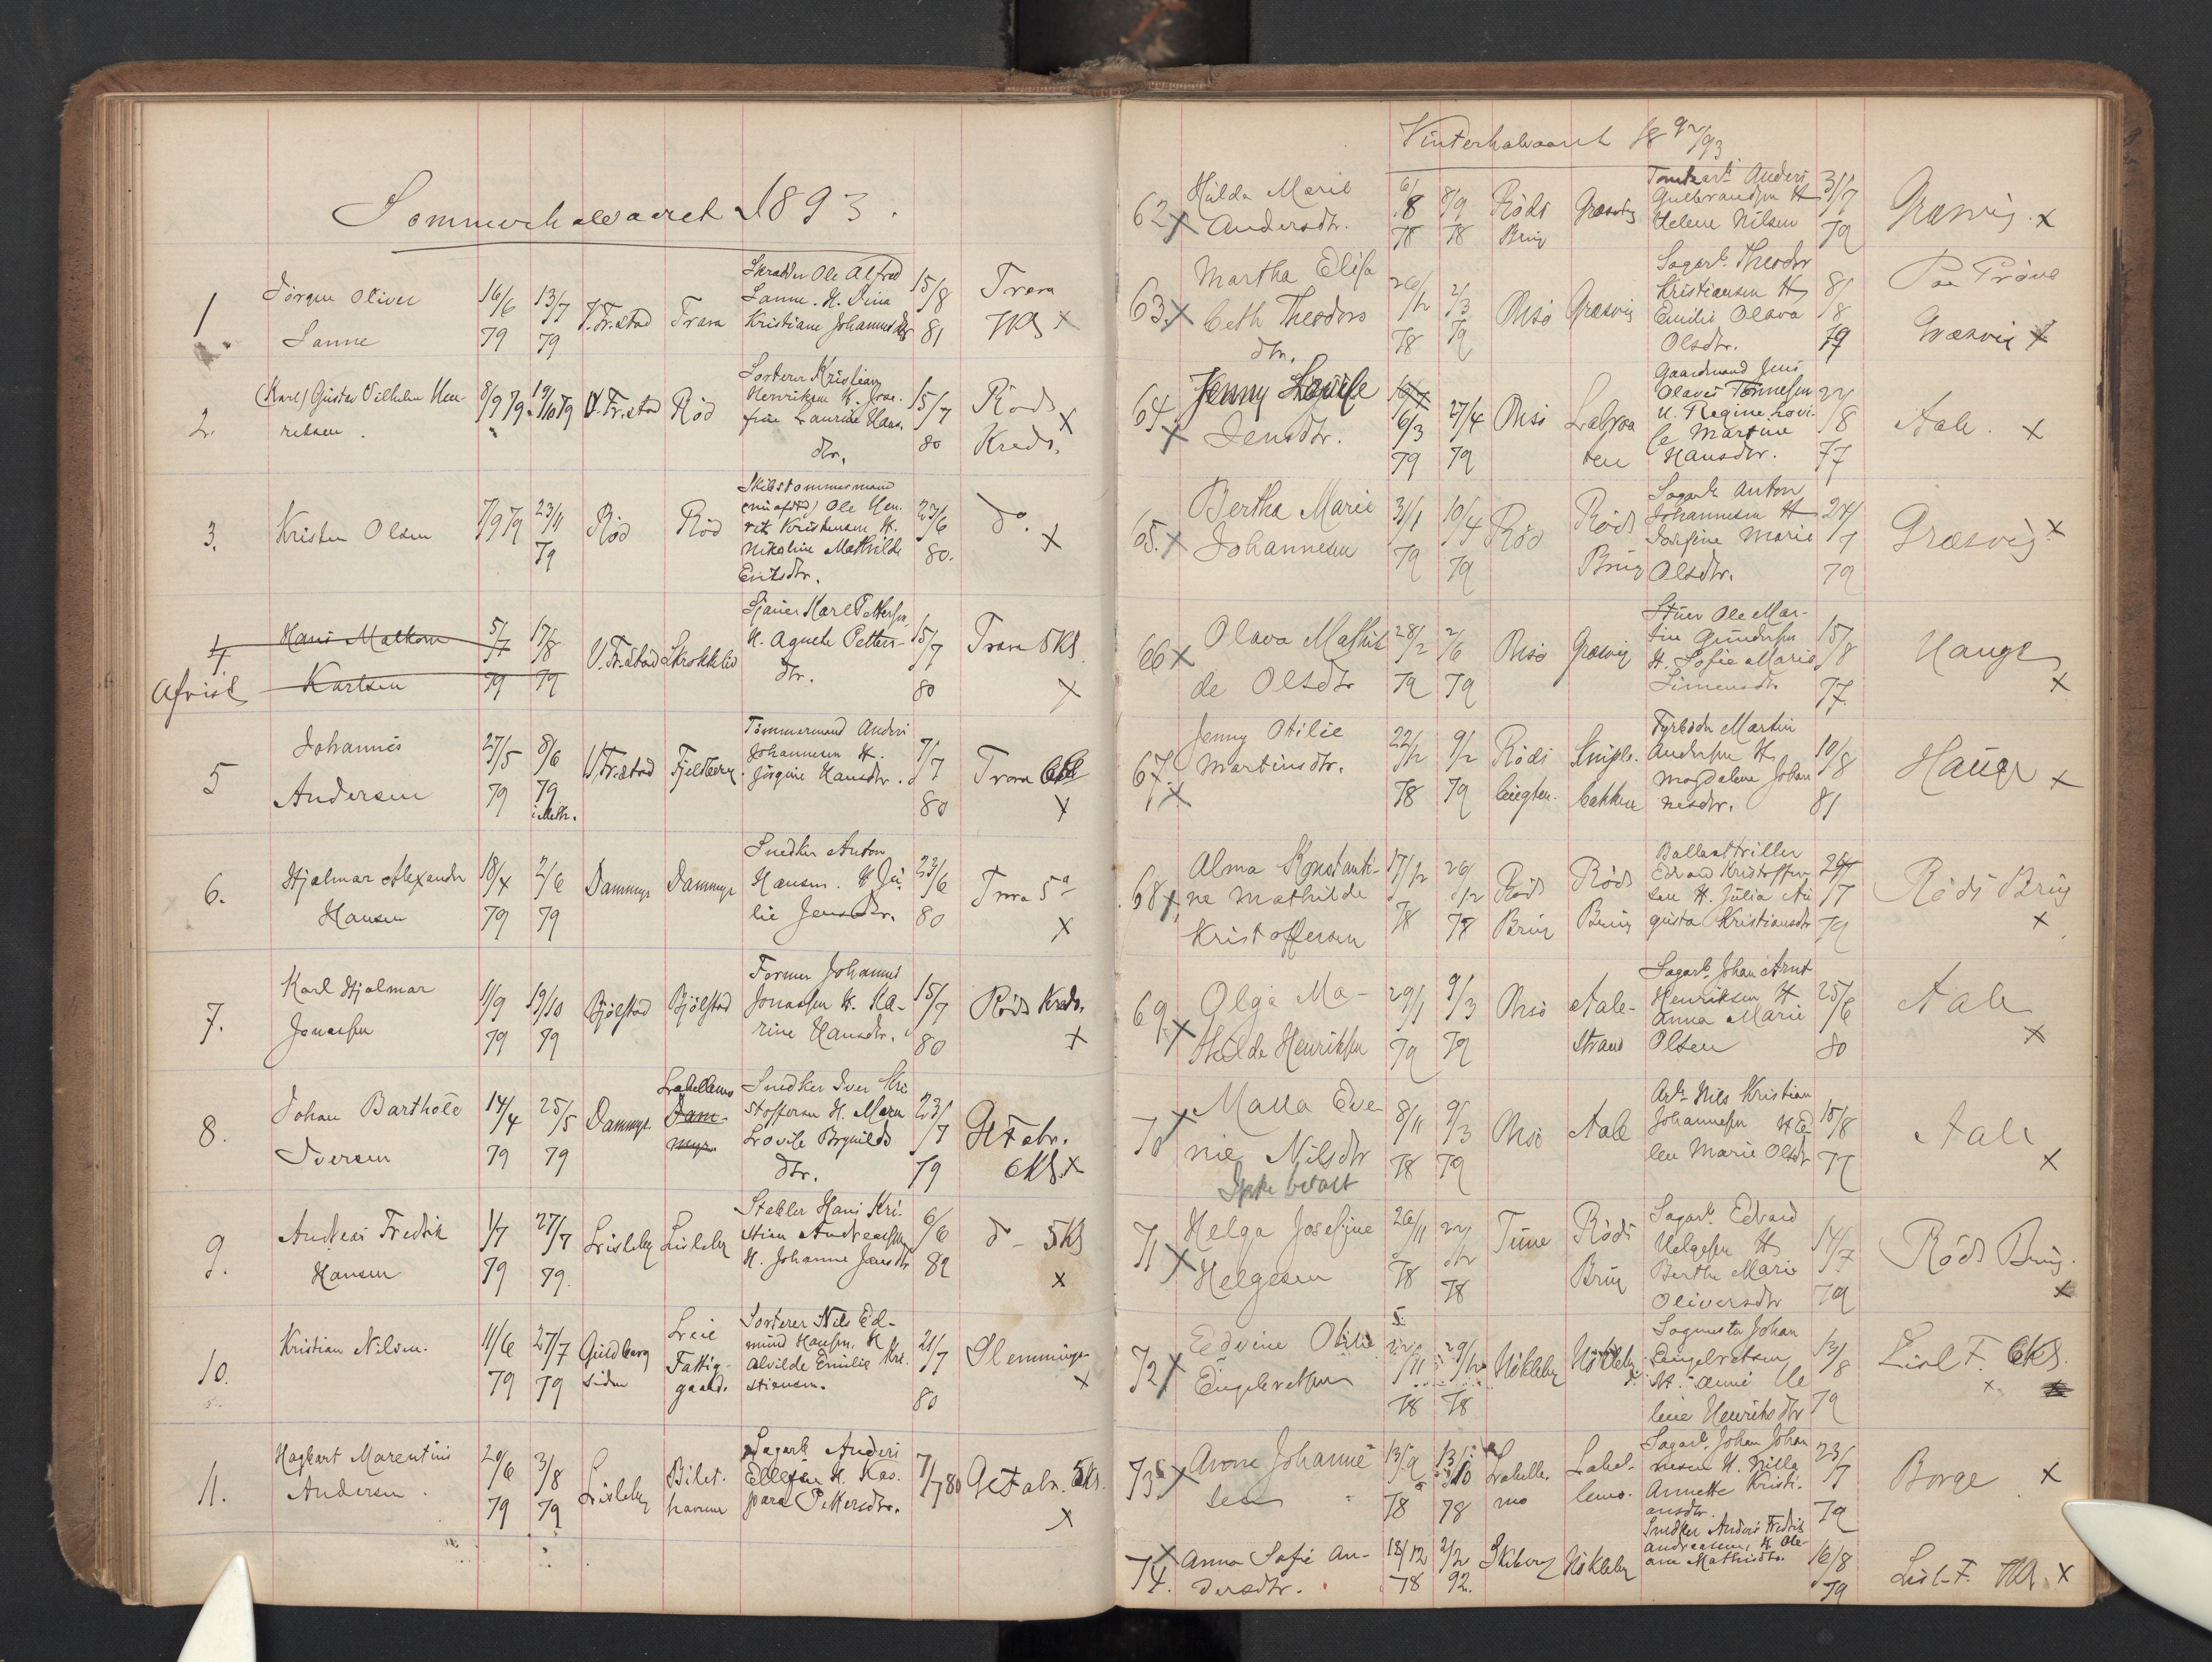 Sommerhalvaaret 1893.
1 Jörgen Oliver Sanne 16/6 79 13/7 79 V. Fr.stad Trara Skrædder Ole Alfred Sanne. H. Dina Kristiane Johannesdtr 15/8 81 Trara 7Kl x
2. (Karl) Gustav Vilhelm Henriksen. 8/9 79 19/10 79 V. Fr.stad Röd Sorterer Kristian Henriksen H. Jose-
fine Laurine Hans.
dtr. 15/7 80 Röds Kreds. x
3. Kristen Olsen 7/9 79 23/11 79 Röd Röd Skibstømmermand
Ole Hen-
rik Kristensen H.
Nikoline Mathilde
Eritsdtr. 23/6 80. do. x
4. Afvist Hans Karlsen 5/7 79 17/8 79 V. Fr.stad Karl Pettersen,
H. Agnete Petters-
dtr. 15/7 80 Trara 5Kl x
5 Johannes Andersen 27/5 79 8/6 79 V. Fr.stad Fjeldberg. Tömmermand Anders
Johannesen H.
Jörgine Hansdtr. 7/7 80 Trara 6Kl x
6. Hjalmar Alexander Hansen 18/4 79 2/6 79 Dammyr Dammyr Snedker Anton
Hansen. H. Ju-
lie Jensdtr. 23/6 80 Trara 5a x
7. Karl Hjalmar Jonassen 11/9 79 19/10 79 Bjölstad Bjölstad Former Johannes
Jonassen H. Ka-
rine Hansdtr. 15/7 80 Röds Kreds. x
8. Johan Bartholé Iversen 14/4 79 25/5 79 Dammyr. Labellemo Dam-
myr. Snedker Iver Kri
stoffersen H. Maren
Lovise Brynilds
dtr. 23/7 79 Gl Fabr. 6Kl. x
9. Andreas Fredrik Hansen 1/7 79 27/7 79. Lisleby Lisleby Stabler Hans Kri-
stian Andreassen
H. Johanne Jansdtr 6/6 82 do - 5Kl x
10. Kristian Nilsen. 11/6 79 27/7 79 Gudberg
siden Leie
Fattig-
gaard. Sorterer Nils Ed-
mund Hansen. H
Alvilde Emilie Kri-
stiansen. 21/7 80 Glemminge x
11. Hagbart Marentius Andersen. 20/6 79 3/8 79 Lisleby Bilet-
havne Sagarb. Anders
Ellefsen H. Kas-
para Pettersdtr. 7/7 80 Gl Fabr. 5Kl. x
Vinterhalvaaret 18 92/93
62 x Hilda Marie Andersdtr. 6/8 78 8/9 78 Röds Brug Græsvig Tomtearb. Anders
Gulbrandsen H
Helene Nilsen 31/7 79 Græsvig. x
63. x Martha Elisa
beth Theodors
dtr. 26/12 78 2/3 79 Onsö Græsvig Sagarb. Theodor
Kristiansen H
Emilie Olava
Olsdtr. 8/8 79 Paa Pröve
Græsvig x
64. x Jenny Lovise Jensdtr. 6/3 79 27/4 79 Onsö Gaardmand Jens
Olaves Tönnesen
H. Regine Lovi-
se Martine
Hansdtr. 22/8 77 Aale. x
65. x Bertha Marie Johannesen 31/1 79 10/4 79 Röd Röds
Brug Sagarb. Anton
Johannesen H
Josefine Marie
Olsdtr. 24/7 79 Græsvig x
66 x Olava Mathil
de Olsdtr 28/2 79 2/6 79 Onsö Græsvig Stuer Ole Mar-
tin Gundersen
H. Sofie Marie
Simensdtr 15/8 77. Hauge x
67. x Jenny Otilie
Martinsdtr. 22/12 78 9/2 79 Röds
bakken Fyrböder Martin
Andersen H
Magdalene Johan
nesdtr. 10/8 81 Hauge x
68 x Alma Konstanti-
ne Mathilde
Kristoffersen 17/12 78 26/12 78 Röds
Brug Röds
Brug Ballasttriller
Edvard Kristoffer
sen H. Julia Au
gusta Kristiansdtr 24/7 79 Röds Brug x
69. x Olga Ma-
thilde Henriksen 29/1 79 9/3 79 Onsö Aale-
strand Sagarb. Johan Arnt
Henriksen H
Anna Marie
Olsen 25/6 80 Aale x
70 x Malla Eve-
nie Nilsdtr
Ikke betalt 8/11 78 9/3 79 Onsö Aale Arb. Nils Kristian
Johannesen H El
len Marie Olsdtr 15/8 77 Aale x
71 x Helga Josefine
Helgesen 26/11 78 22/12 78 Tune Röds
Brug Sagarb. Edvard
Helgesen H
Berthe Marie
Oliversdtr 14/7 79 Röds Brug. x
72 x Edvine Otilie
Engebretsen 22/11 78 29/12 78 Nökleby Nökleby Sagmester Johan
Engebretsen
H. Anne He
lene Henriksdtr 13/8 79 Lisl F. 6Kl. x
73 x Arone Johanne-
sen 13/9 78 13/10 78 Labelle-
mo Label-
lemo. Sagarb. Johan Johan
nesen H. Nille
Annette Kristi-
ansdtr. 23/7 79 Borge x
74. x Anna Sofie An-
dersdtr. 18/12 78 2/2 92. Nökleby Snedker Anders Fredrik
Andreasen, H. Ole-
ane Mathisdtr. 16/8 79 Lisl-F. 7Kl. x